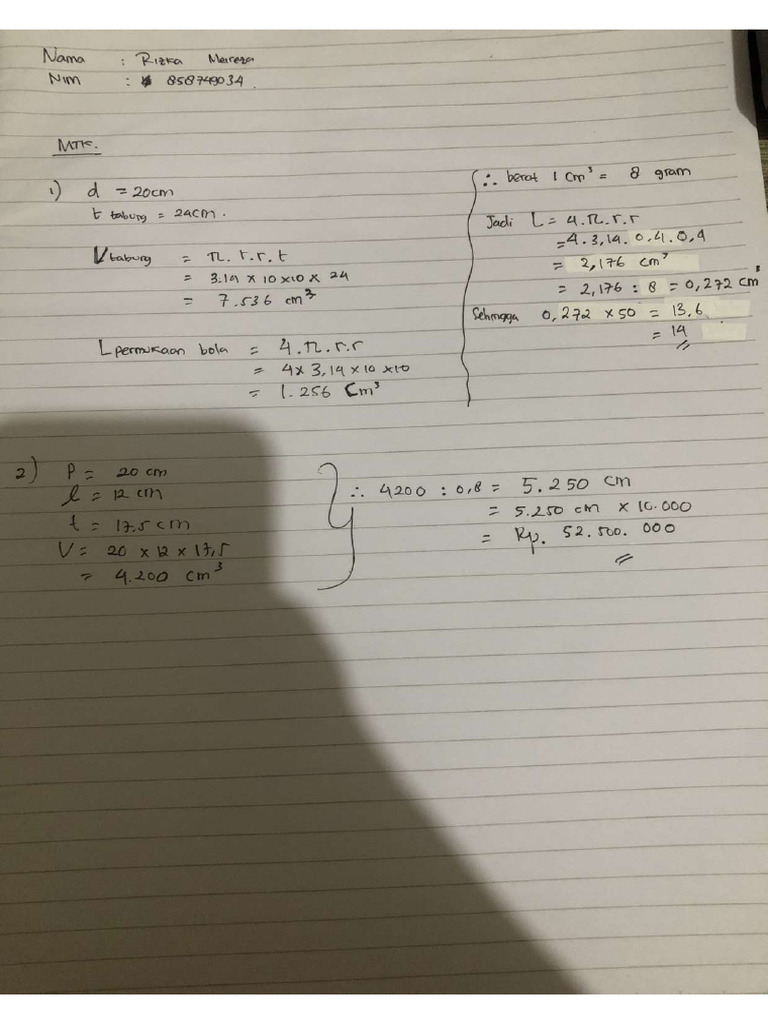 Nama : Rizka Meireza
Nim : 858749034
MTK.
1) d = 20cm
t tabung = 24cm.
V tabung = π. r. r. t
= 3.14 x 10 x 10 x 24
= 7.536 cm³
L permukaan bola = 4.π.r.r
= 4 x 3,14 x 10 x 10
= 1.256 Cm³
∴ berat 1 cm³ = 8 gram
Jadi L = 4.π.r.r
= 4. 3,14. 0,4. 0,4
= 2,176 cm³
= 2,176 : 8 = 0,272 cm³
Sehingga 0,272 x 50 = 13,6
= 14
2) P = 20 cm
l = 12 cm
t = 17,5 cm
V = 20 x 12 x 17,5
= 4.200 cm³
∴ 4200 : 0,8 = 5.250 cm
= 5.250 cm x 10.000
= Rp. 52.500.000